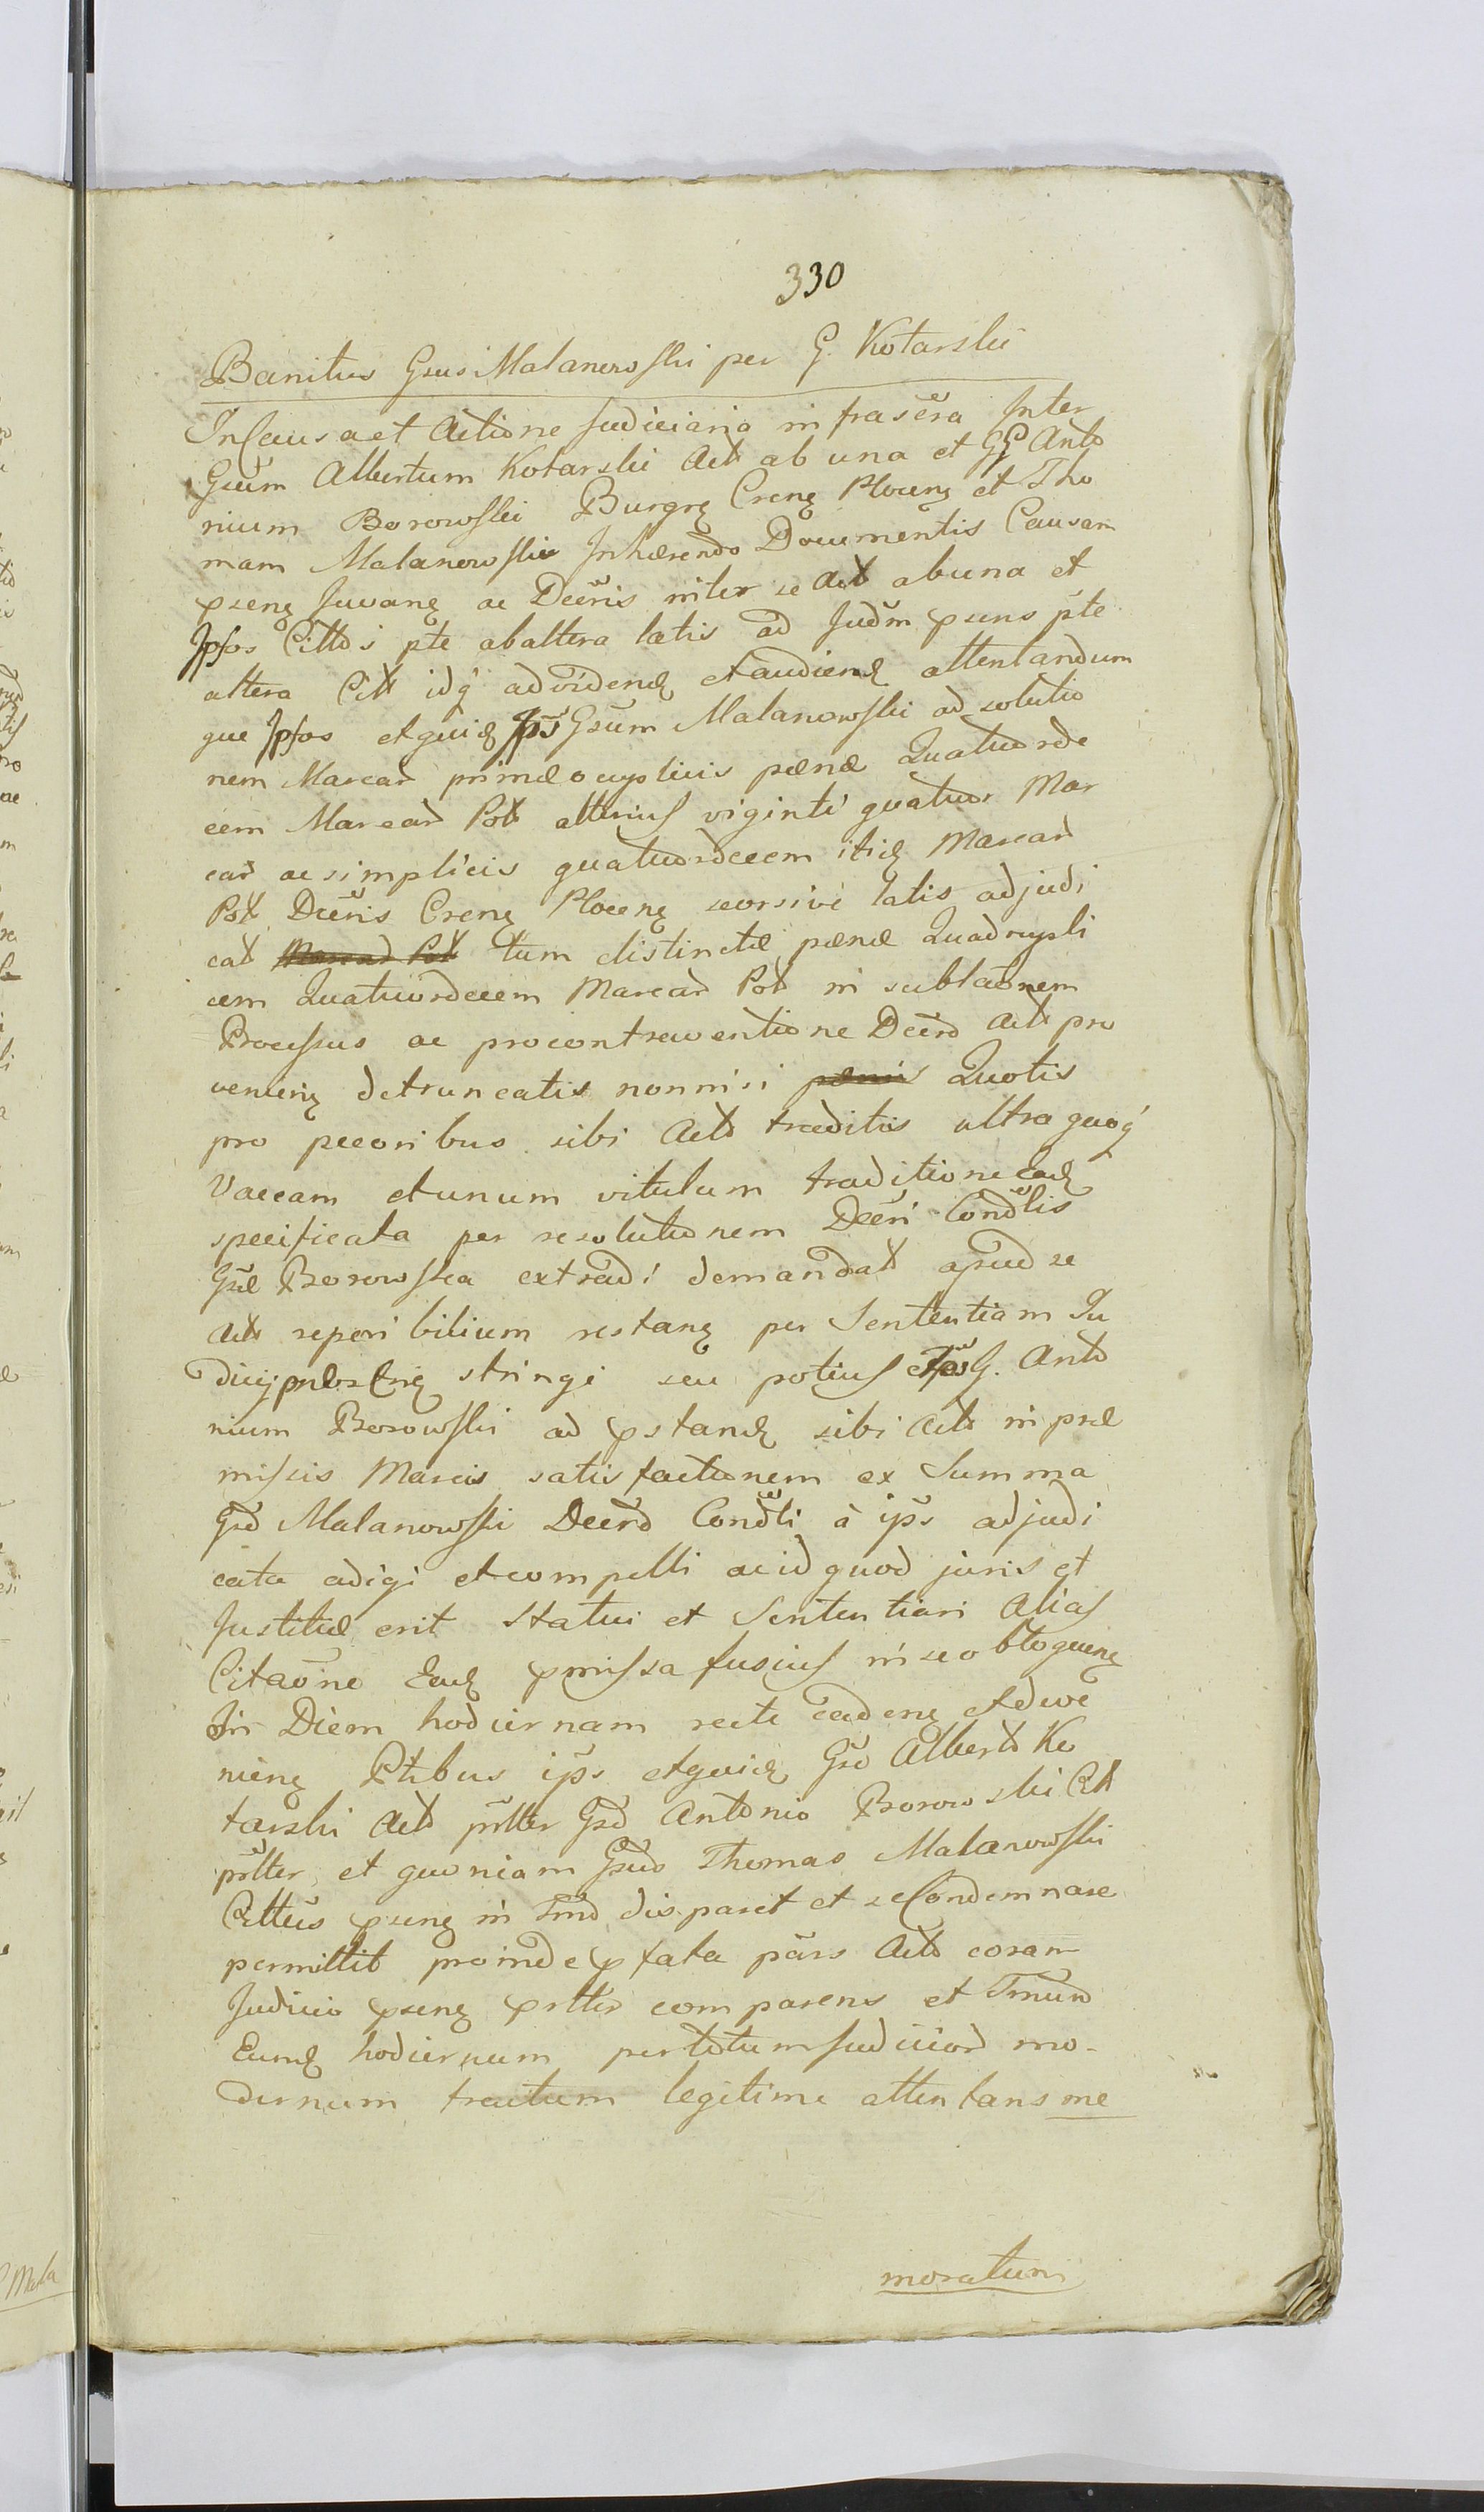 330
Banitus Gsus Malanowski per G. Kotarski
In Causa et Actione Judiciaria infrascra Inter
Gsum Albertum Kotarski Act ab una et GG Anto
nium Borowski Burgrę Crenę Plocenę et Tho
mam Malanowski Inhærendo Documentis Causam
pzenę Juvanę ac Decris inter se Act ab una et
Ipsos Cittos pte ab altera latis ad Judm psens pte
altera Citt idq advidend et audiend attentandum
que Ipsos et quid Ips Gsum Malanowski ad solutio
nem Marcar primæ octuplicis pœnæ Quatuorde
cem Marcar Pol alterius viginti quatuor Mar
car ac simplicis quatuordecem itid Marcar
Pol Decris Crenę Plocenę seorsive latis adjudi
cat Marcar Pol tum distinctæ pœnæ Quadrupli
cem Quatuordecem Marcar Pol in sublaonem
Processus ac pro contraventione Decro Act pro
venienę detruncatis nonnisi pœnis Quotis
pro pecoribus sibi Acto traditis ultra quoq
Vaccam et unum vitulum traditione ead
specificata per resolutionem Decri Condlis
Gsæ Borowska extradi demandat apud se
Act reperibilium restanę per Sententiam Ju
dicij pnlis Crenę stringi seu potius Ips G. Anto
nium Borowski ad pstand sibi Acto in præ
missis Marcis satisfactionem ex Summa
Gso Malanowski Decro Condli à ips adjudi
cata adigi et compelli ac id quod juris et
Justitiæ erit Statui et Sententiari Alias
Citaone Ead pmissa fusius in se obloquenę
In Diem hodiernam recte cadenę et adve
nienę Ptibus ips et quid Gso Alberto Ko
tarski Acto psllter Gso Antonio Borowski Citt
psllter, et quoniam Gsus Thomas Malanowski
Cittus psenę in Tmo disparet et se Condemnare
permittit proinde pfata pars Act coram
Judicio psenę psllter comparens et Tmum
Eund hodiernum per totum Judicior mo-
dernum tractum legitime attentans me
moraturi